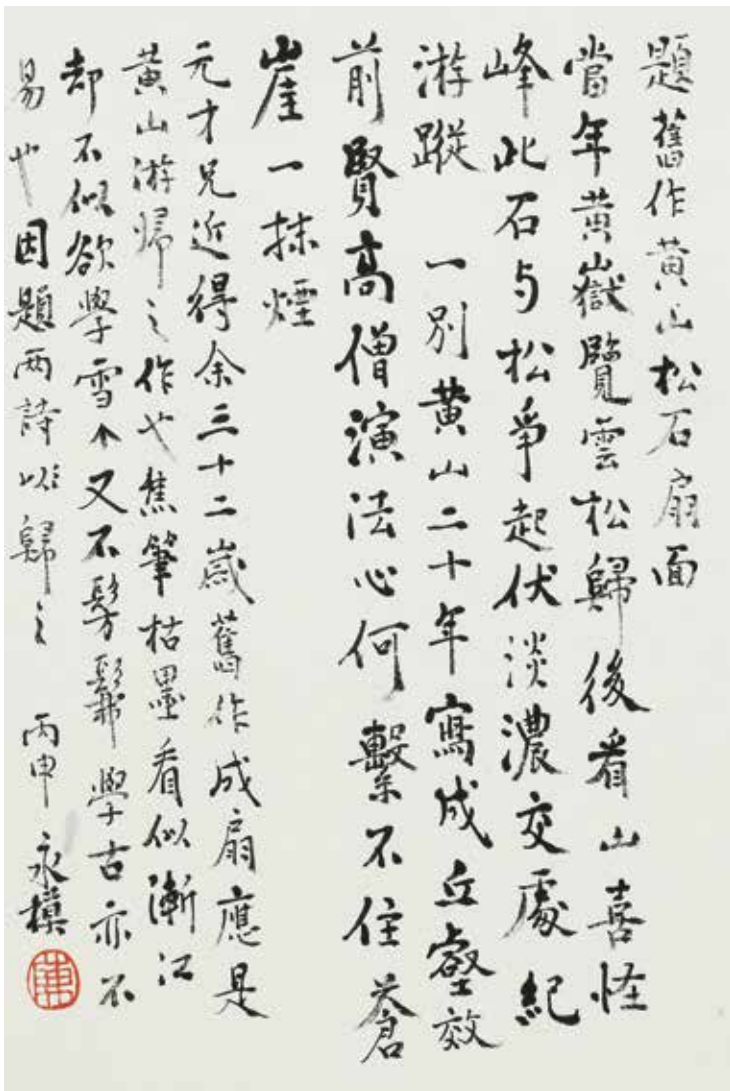 題舊作黃山松石扇面
當年黃嶽覽雲松歸後看山喜怪
峰此石与松爭起伏淡濃交處紀
游蹤 一別黃山二十年寫成丘壑效
前賢高僧演法心何繫不住蒼
崖一抹煙
元才兄近得余三十二歲舊作成扇應是
黃山游歸之作也焦筆枯墨看似漸江
却不似欲學雪个又不髣髴學古亦不
易也因題兩詩以歸之 丙申 永模